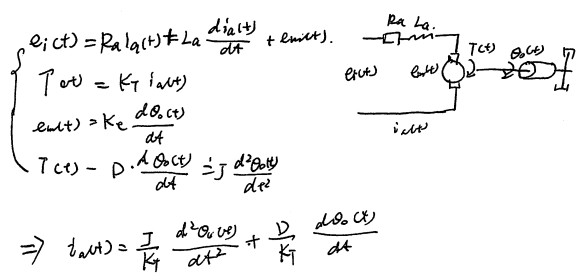 e_i(t) = R_a i_a(t) + L_a \frac{d i_a(t)}{dt} + e_m(t).
T(t) = K_T i_a(t)
e_m(t) = K_e \frac{dθ_o(t)}{dt}
T(t) - D · \frac{dθ_o(t)}{dt} = J \frac{d^2θ_o(t)}{dt^2}
⇒ i_a(t) = \frac{J}{K_T} \frac{d^2θ_o(t)}{dt^2} + \frac{D}{K_T} \frac{dθ_o(t)}{dt}
R_a L_a
T(t) θ_o(t)
e_i(t) e_m(t)
i_a(t)